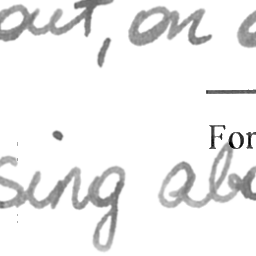 out, on
For
sing abo